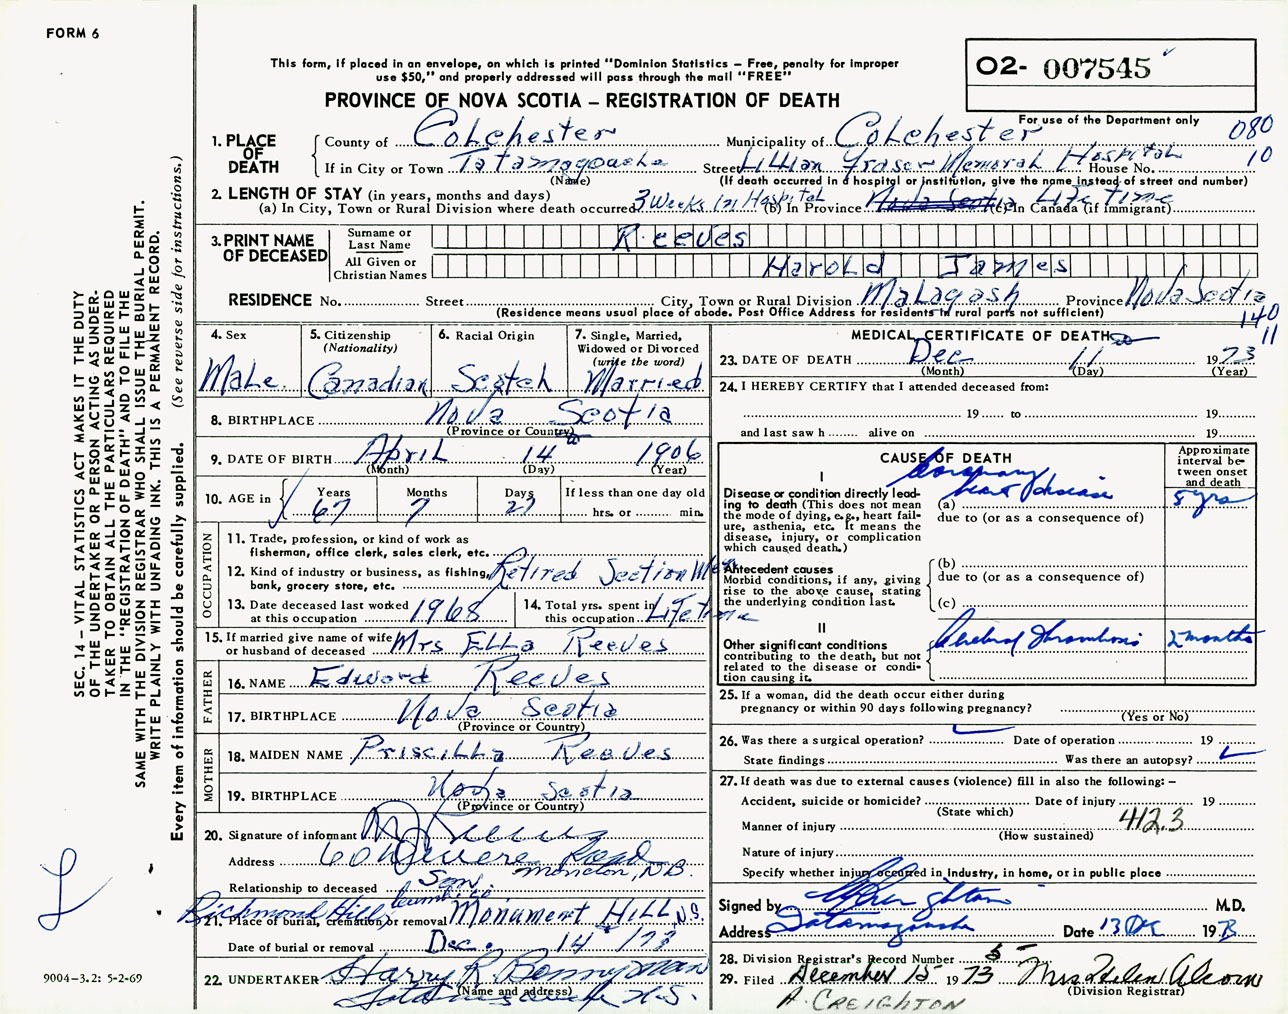 FORM 6
This form, if placed in an envelope, on which is printed "Dominion Statistics – Free, penalty for improper
use $50," and properly addressed will pass through the mail "FREE"
PROVINCE OF NOVA SCOTIA – REGISTRATION OF DEATH
O2- 007545
For use of the Department only
080
10
1. PLACE OF DEATH
County of Colchester Municipality of Colchester
If in City or Town Tatamagouche Street Lillian Fraser Memorial Hospital House No.
(Name) (If death occurred in a hospital or institution, give the name instead of street and number)
2. LENGTH OF STAY (in years, months and days)
(a) In City, Town or Rural Division where death occurred 3 Weeks in Hospital (b) In Province Nova Scotia (c) In Canada (if immigrant) Life time
3. PRINT NAME OF DECEASED
Surname or Last Name Reeves
All Given or Christian Names Harold James
RESIDENCE No. Street City, Town or Rural Division Malagash Province Nova Scotia
(Residence means usual place of abode. Post Office Address for residents in rural parts not sufficient)
140
11
4. Sex
Male
5. Citizenship
(Nationality)
Canadian
6. Racial Origin
Scotch
7. Single, Married,
Widowed or Divorced
(write the word)
Married
8. BIRTHPLACE Nova Scotia
(Province or Country)
9. DATE OF BIRTH April 14 1906
(Month) (Day) (Year)
10. AGE in Years Months Days If less than one day old
67 7 27 hrs. or min.
OCCUPATION
11. Trade, profession, or kind of work as
fisherman, office clerk, sales clerk, etc.
12. Kind of industry or business, as fishing,
bank, grocery store, etc. Retired Section Man
13. Date deceased last worked
at this occupation 1968
14. Total yrs. spent in
this occupation Lifetime
15. If married give name of wife
or husband of deceased Mrs Ella Reeves
FATHER
16. NAME Edword Reeves
17. BIRTHPLACE Nova Scotia
(Province or Country)
MOTHER
18. MAIDEN NAME Priscilla Reeves
19. BIRTHPLACE Nova Scotia
(Province or Country)
20. Signature of informant
Address Road
Moncton, N.B.
Relationship to deceased Son
Richmond Hill Cumb. Co.
21. Place of burial, cremation or removal Monument Hill N.S.
Date of burial or removal Dec. 14 /73
22. UNDERTAKER Harry R Bonnyman
(Name and address)
Tatamagouche N.S.
MEDICAL CERTIFICATE OF DEATH
23. DATE OF DEATH Dec 11 1973
(Month) (Day) (Year)
24. I HEREBY CERTIFY that I attended deceased from:
19 to 19
and last saw h alive on 19
CAUSE OF DEATH
Approximate
interval be-
tween onset
and death
I
Disease or condition directly lead-
ing to death (This does not mean
the mode of dying, e.g., heart fail-
ure, asthenia, etc. It means the
disease, injury, or complication
which caused death.)
Coronary
(a) heart disease 5 yrs
due to (or as a consequence of)
Antecedent causes
Morbid conditions, if any, giving
rise to the above cause, stating
the underlying condition last.
(b)
due to (or as a consequence of)
(c)
II
Other significant conditions
contributing to the death, but not
related to the disease or condi-
tion causing it.
Cerebral Thrombosis 2 months
25. If a woman, did the death occur either during
pregnancy or within 90 days following pregnancy?
(Yes or No)
26. Was there a surgical operation? Date of operation 19
State findings Was there an autopsy?
27. If death was due to external causes (violence) fill in also the following: –
Accident, suicide or homicide? Date of injury 19
(State which)
Manner of injury 412.3
(How sustained)
Nature of injury
Specify whether injury occurred in industry, in home, or in public place
Signed by Creighton M.D.
Address Tatamagouche Date 13 Dec 1973
28. Division Registrar's Record Number 5
29. Filed December 15 1973 Mrs Helen Alcorn
(Division Registrar)
A. CREIGHTON
SEC. 14 – VITAL STATISTICS ACT MAKES IT THE DUTY
OF THE UNDERTAKER OR PERSON ACTING AS UNDER-
TAKER TO OBTAIN ALL THE PARTICULARS REQUIRED
IN THE "REGISTRATION OF DEATH" AND TO FILE THE
SAME WITH THE DIVISION REGISTRAR WHO SHALL ISSUE THE BURIAL PERMIT.
WRITE PLAINLY WITH UNFADING INK. THIS IS A PERMANENT RECORD.
Every item of information should be carefully supplied. (See reverse side for instructions.)
9004-3.2: 5-2-69